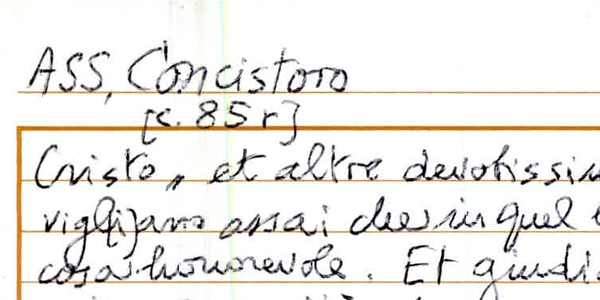 ASS, Concistoro
[c. 85r]
Cristo, et altre devotissim
vigl[i]ano assai che in quel
cosa honorevole. Et giudi